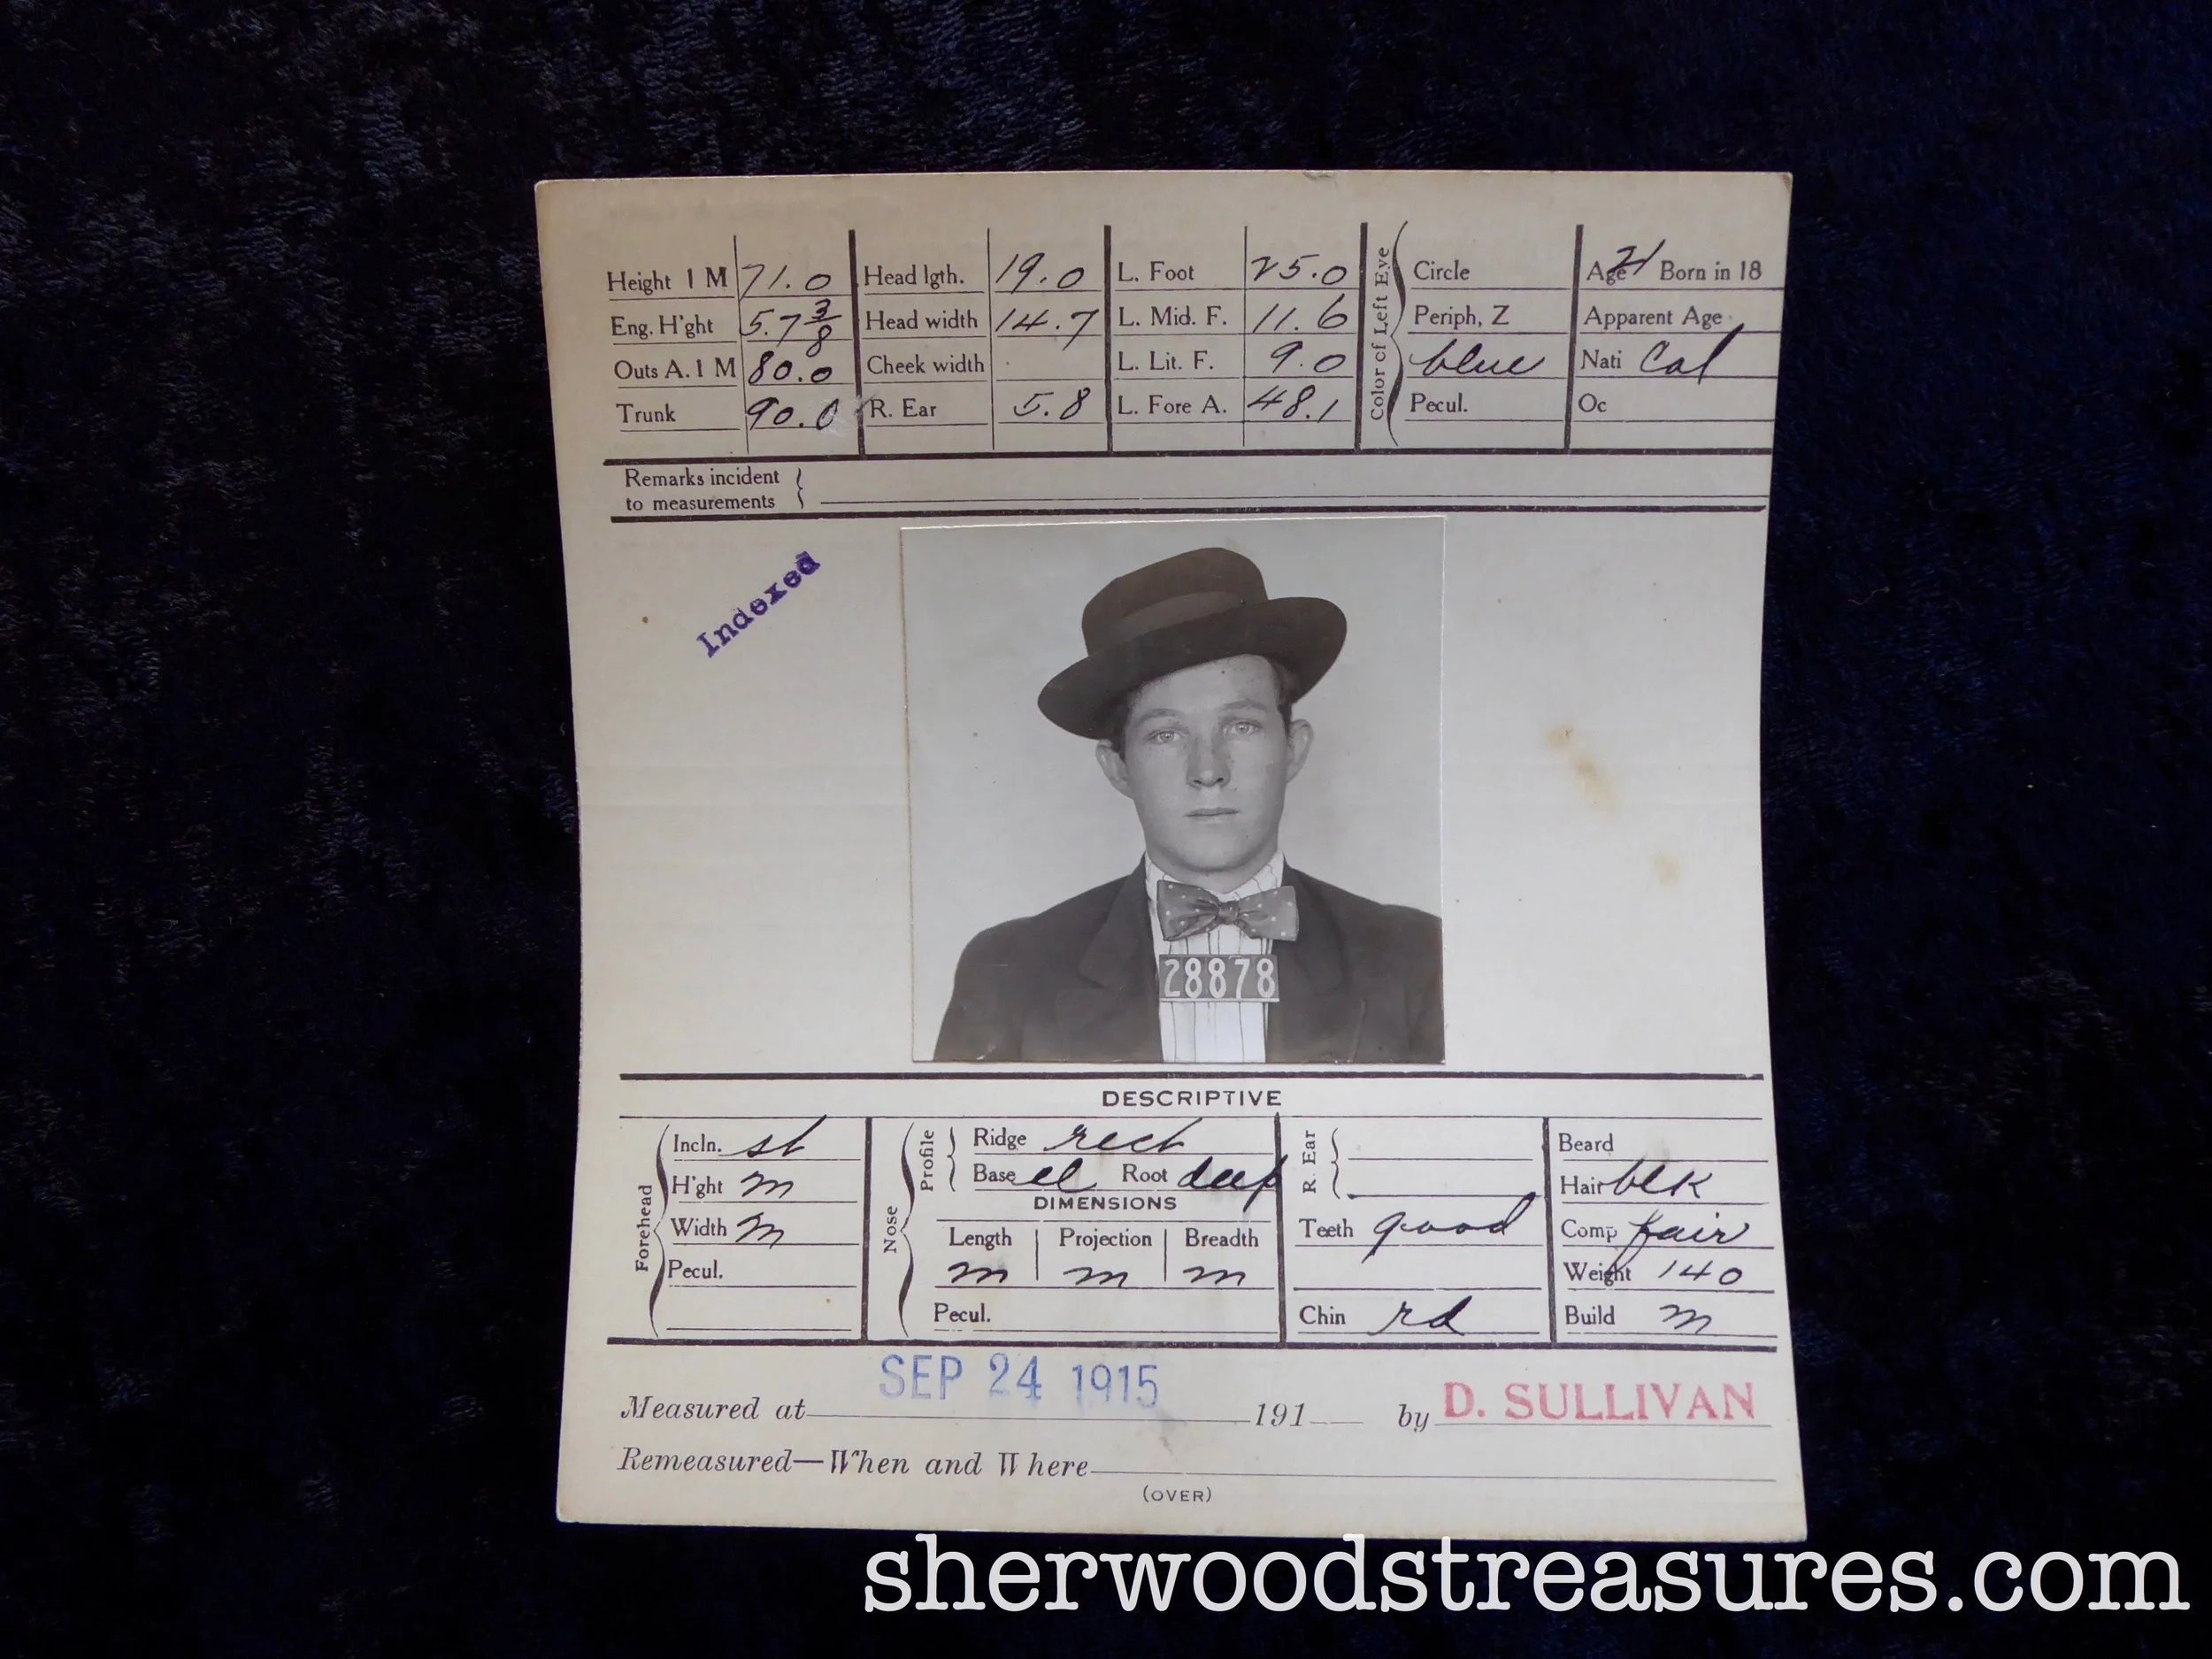 Height 1 M 71.0 Head lgth. 19.0 L. Foot 25.0 Circle Age 21 Born in 18
Eng. H'ght 5.7 3/8 Head width 14.7 L. Mid. F. 11.6 Periph, Z Apparent Age
Outs A. 1 M 80.0 Cheek width L. Lit. F. 9.0 blue Nati Cal
Trunk 90.0 R. Ear 5.8 L. Fore A. 48.1 Pecul. Oc
Color of Left Eye
Remarks incident
to measurements
Indexed
28878
DESCRIPTIVE
Forehead
Incln. st
H'ght m
Width m
Pecul.
Nose
Profile
Ridge rect
Base el Root deep
DIMENSIONS
Length Projection Breadth
m m m
Pecul.
R. Ear
Teeth good
Chin rd
Beard
Hair blk
Comp fair
Weight 140
Build m
SEP 24 1915
Measured at 191 by D. SULLIVAN
Remeasured—When and Where
(OVER)
sherwoodstreasures.com